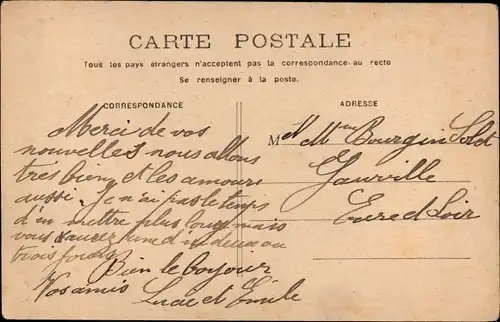 CARTE POSTALE
Tous les pays étrangers n'acceptent pas la correspondance au recto
Se renseigner à la poste.
CORRESPONDANCE
Merci de vos
nouvelles nous allons
tres bien et les amours
aussi. Je n'ai pas le temps
d'en mettre plus long mais
vous aurez une dis deux ou
trois jours
Bien le bojour
Vos amis Lucie et Emile
ADRESSE
M et Mme Bourgin Solet
Gaurville
Eure et Loir